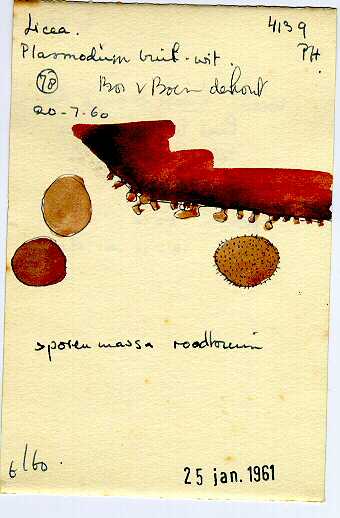 Licea.
4139
Plasmodium bruik-wit.
PH
78
Bos v Boem dahout
20-7-60
sporen massa roodbruin
6/60.
25 jan. 1961